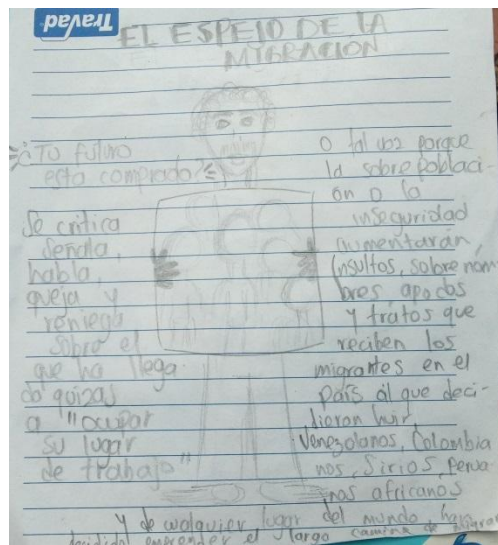 Travad
EL ESPEJO DE LA
MIGRACION
¿Tu futuro
esta comprado?
Se critica
señala,
habla,
queja y
reniega
sobre el
que ha llega
do quizas
a "ocupar
su lugar
de trabajo"
O tal vez porque
la sobrepoblaci-
ón o la
inseguridad
aumentarán,
insultos, sobre nom
bres apodos
y tratos que
reciben los
migrantes en el
país al que deci-
dieron huir,
Venezolanos, Colombia
nos, Sirios, perua
nos africanos
y de cualquier lugar del mundo han
decidido emprender el largo camino de migrar